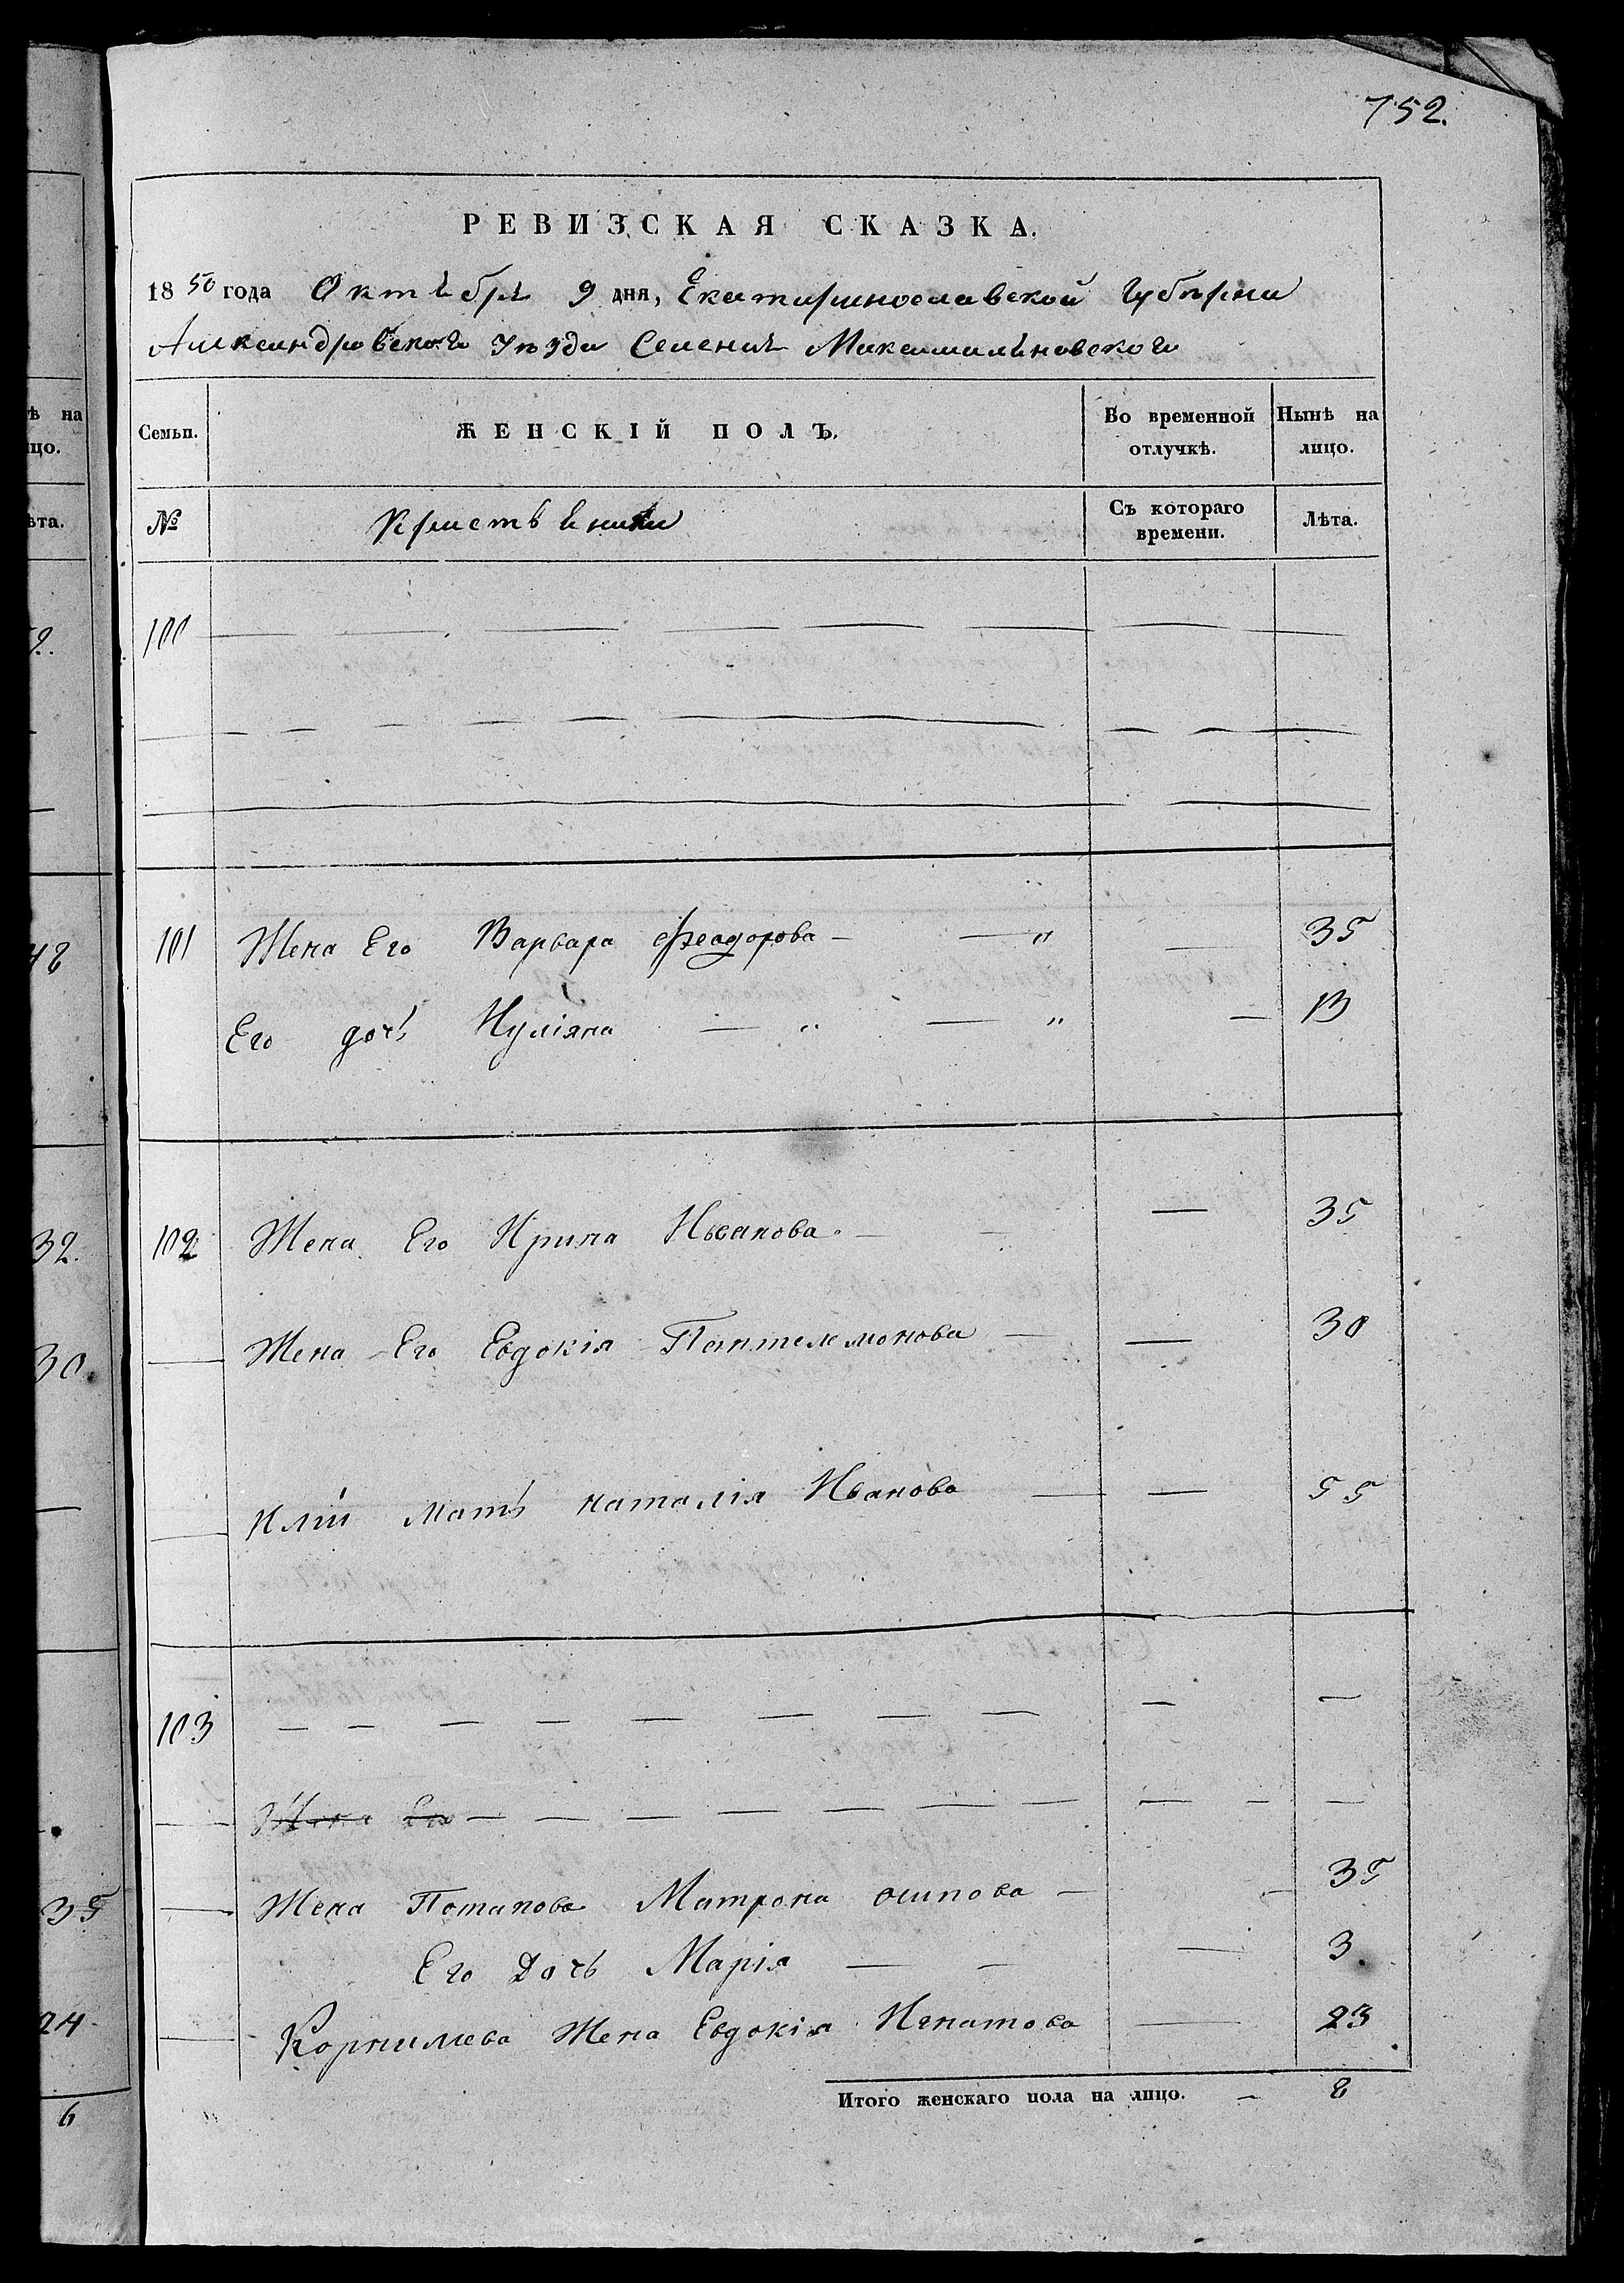 ѣ на
цо.
ѣта.
9.
48
32.
30.
35
24
6
752.
РЕВИЗСКАЯ СКАЗКА.
1850 года Октября 9 дня, Екатеринославской Губерніи
Александровскаго Уѣзда Селенія Максимильяновского
Семьи.
ЖЕНСКІЙ ПОЛЪ.
Во временной отлучкѣ.
Нынѣ на лицо.
№
Съ котораго времени.
Лѣта.
100
101 Жена Его Варвара Феодорова — — " — 35
Его дочь Иуліяна — " — " — 13
102 Жена Его Ирина Иванова — — — 35
— Жена Его Евдокія Пантелемонова — — 30
— мать наталія Иванова — — 55
103 — — — — — — — — — —
— Жена Его — — — — — — — — — —
— Жена Потапова Матрона осипова — — 35
Его Дочь Марія — — — 3.
— Корнилева Жена Евдокія Игнатова — 23
Итого женскаго пола на лицо. — 8